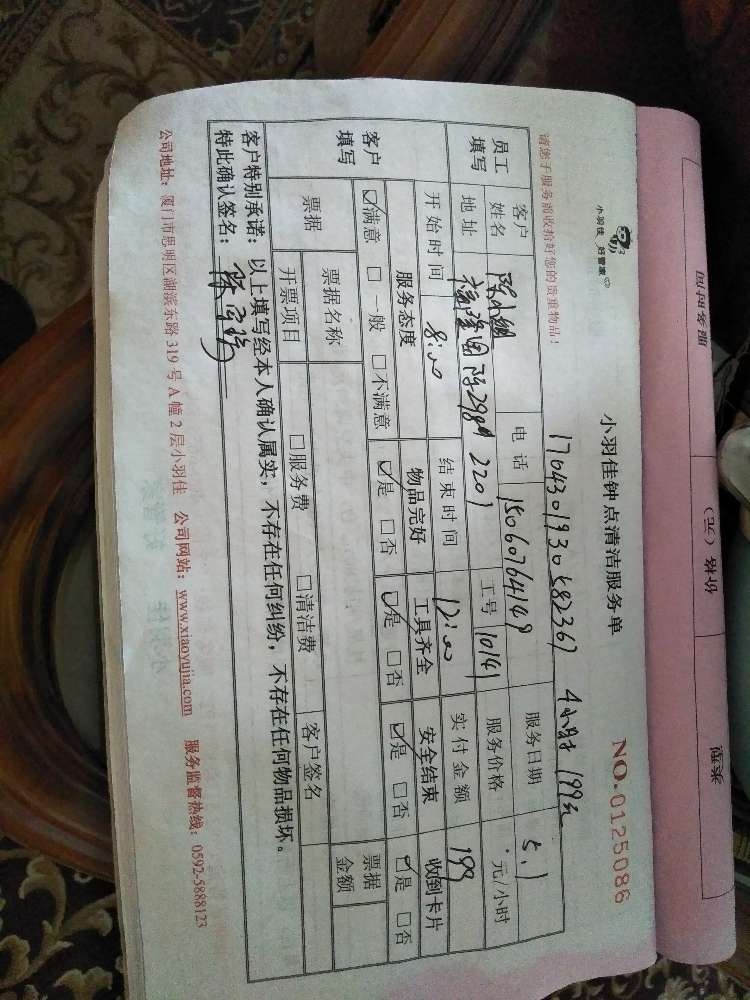 小羽佳 好管家
小羽佳钟点清洁服务单
NO.0125086
请您于服务前收拾好您的贵重物品！
1704301930582367 4小时 199元
员工填写 客户姓名 电话 15060764149 服务日期 5.1
地址 2201 工号 10141 服务价格 元/小时
客户填写 开始时间 8:00 结束时间 12:00 实付金额 199
服务态度 物品完好 工具齐全 安全结束 收到卡片
☑满意 □一般 □不满意 ☑是 □否 ☑是 □否 ☑是 □否 ☑是 □否
票据 票据名称 客户签名 票据金额
开票项目 □服务费 □清洁费
客户特别承诺：以上填写经本人确认属实，不存在任何纠纷，不存在任何物品损坏。
特此确认签名：
公司地址：厦门市思明区湖滨东路 319 号 A 幢 2 层小羽佳 公司网站：www.xiaoyujia.com 服务监督热线：0592-5888123